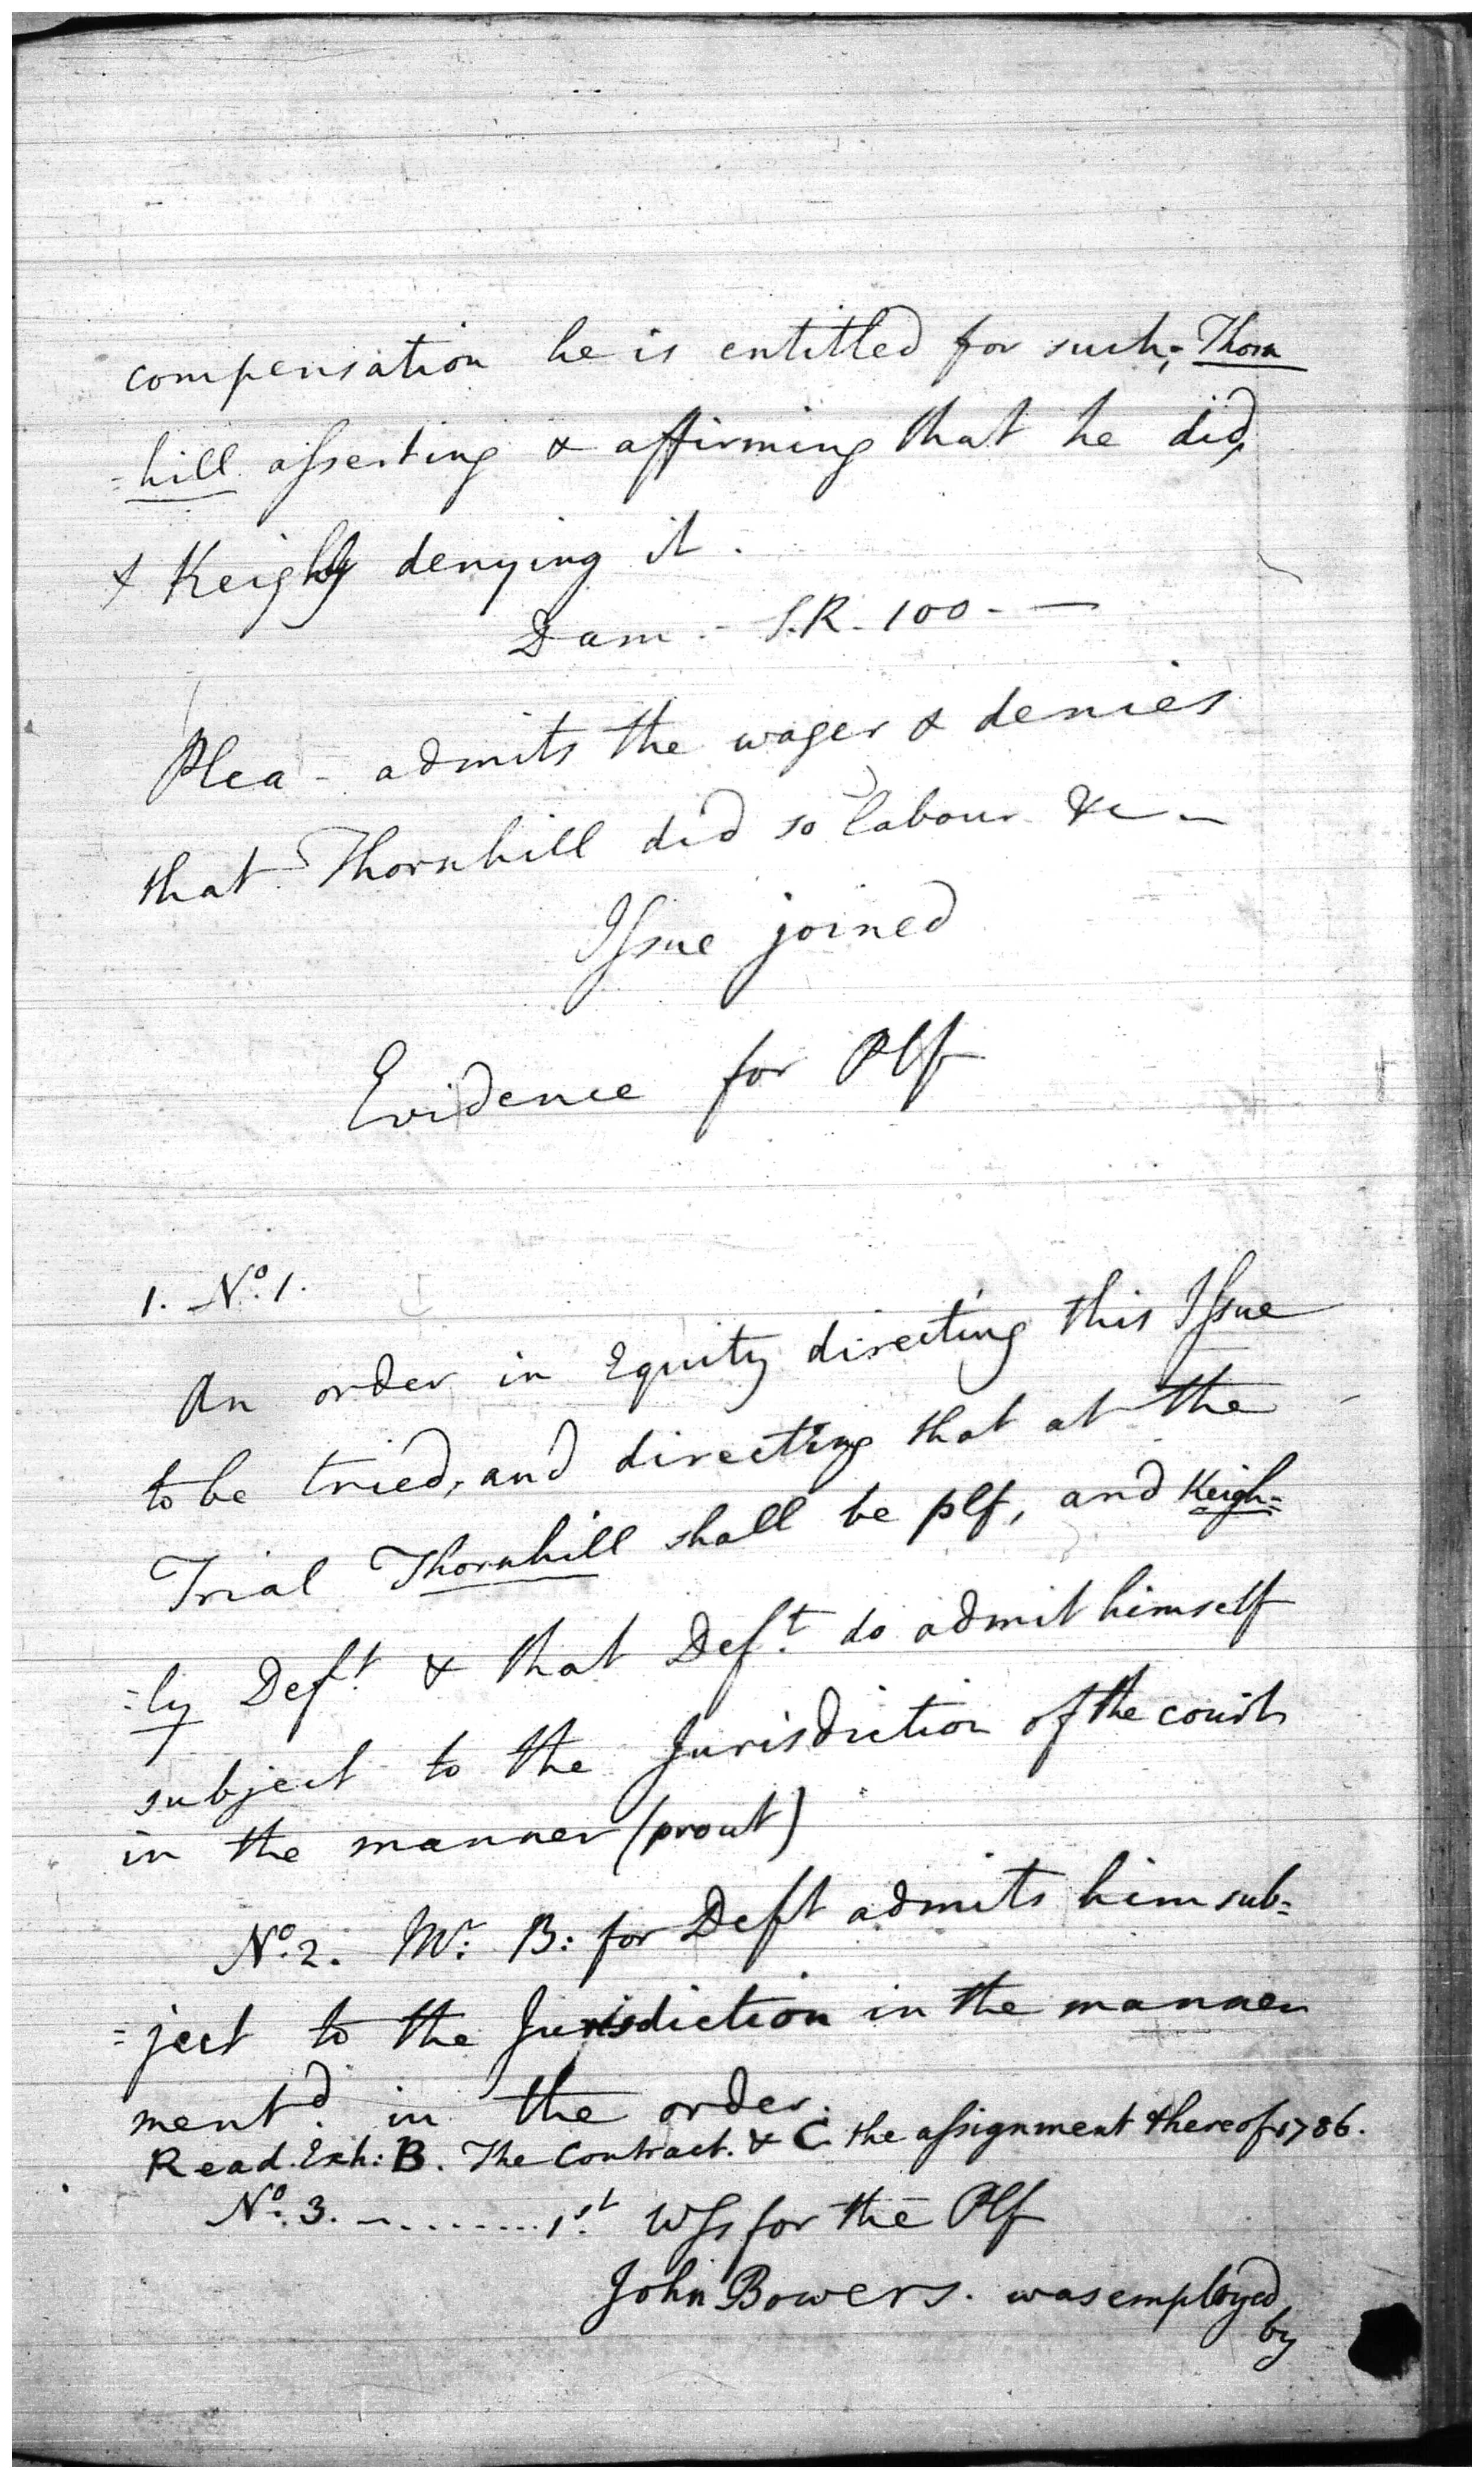 compensation he is entitled for such; Thorn
=hill asserting & affirming that he did,
& Keighly denying it.
Dam - S.R. 100 - —
Plea - admits the wager & denies
that Thornhill did so labour &c -
Issue joined
Evidence for Plf
1. No. 1.
An order in Equity directing this Issue
to be tried, and directing that at the
Trial Thornhill shall be plf, and Keigh=
=ly Deft. & that Deft. do admit himself
subject to the Jurisdiction of the court
in the manner (prout)
No. 2. Mr. B: for Deft admits him sub=
=ject to the Jurisdiction in the manner
mentd. in the order.
Read Exh: B. The Contract. & C. the assignment thereof 1786.
No. 3. - ........ 1st. Wss for the Plf
John Bowers. was employed
by